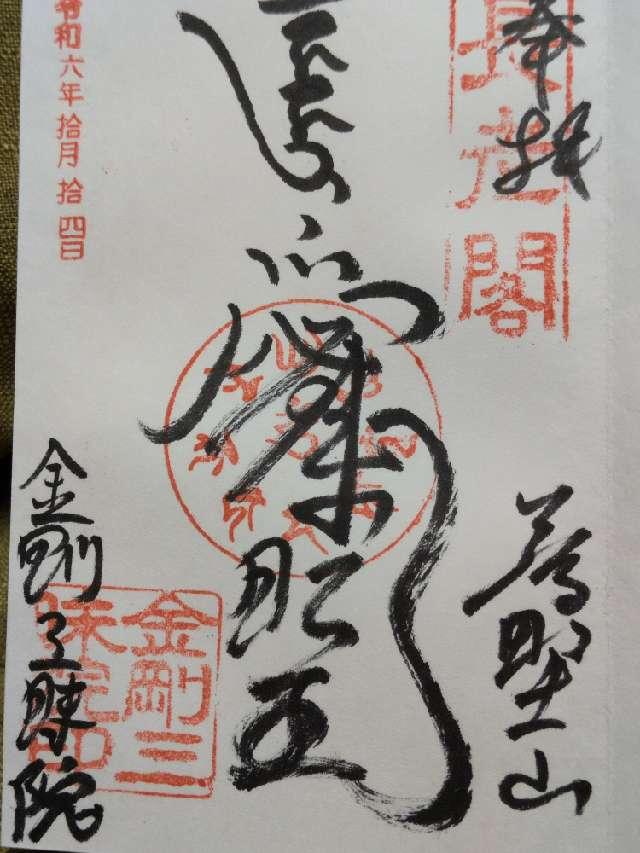 奉拝
長老閣
高野山
愛染明王
金剛三昧院
金剛三昧院印
令和六年拾月拾四日